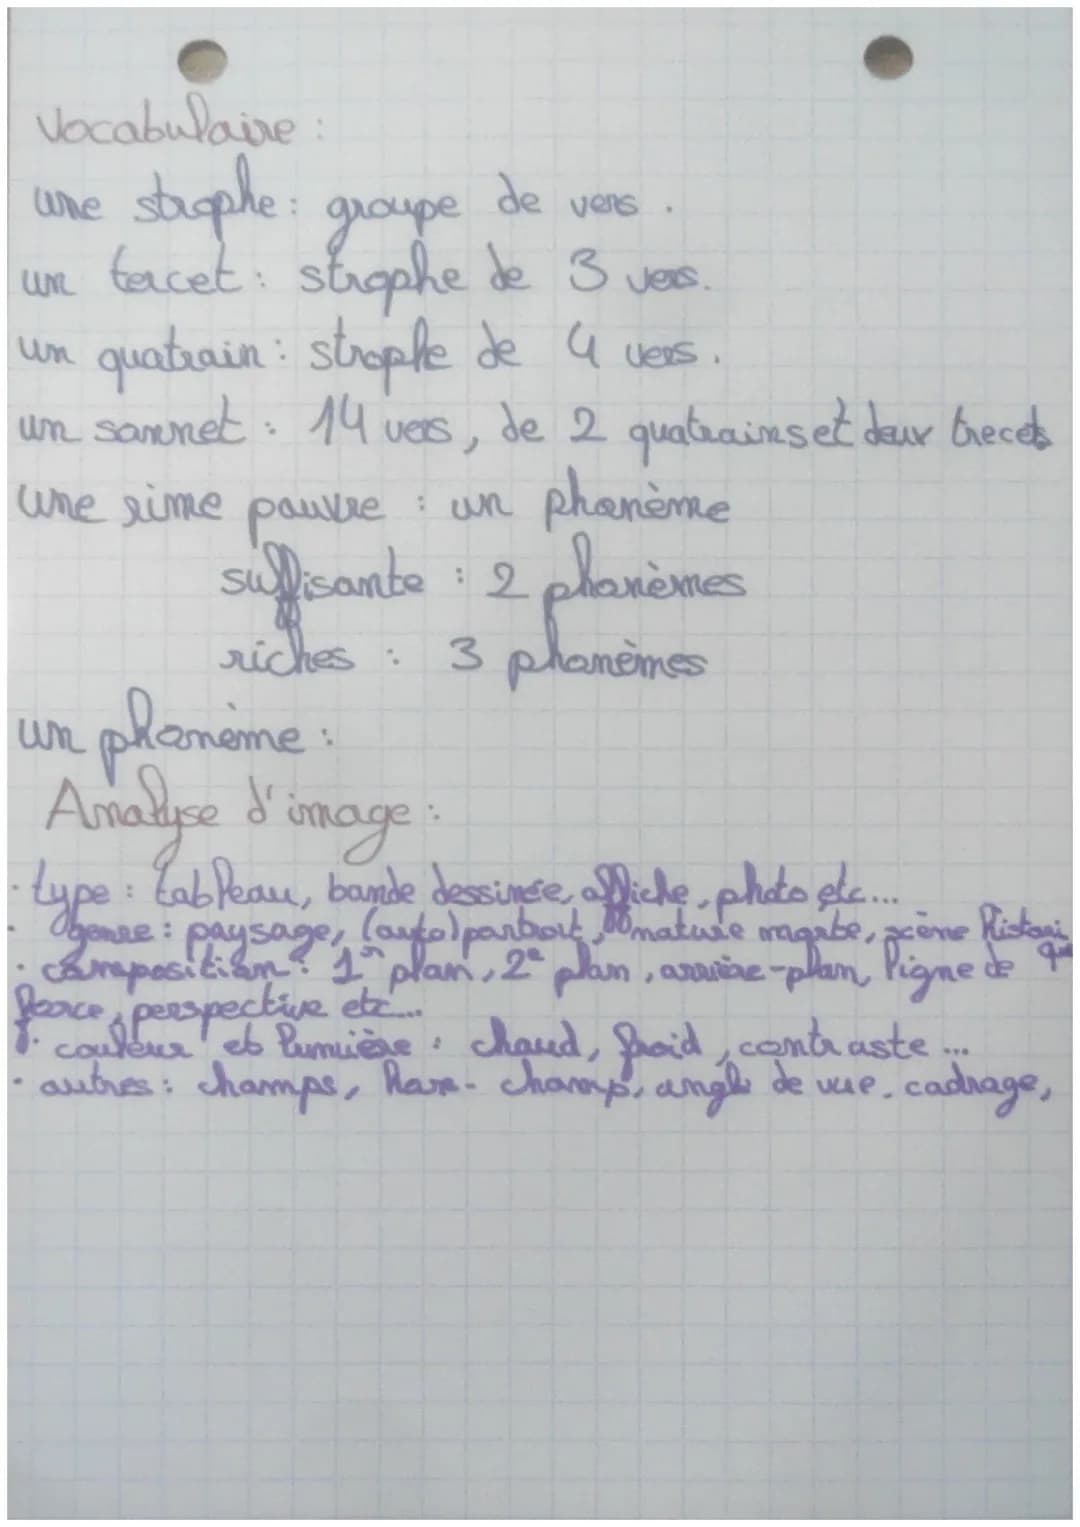 Vocabulaire :
une strophe : groupe de vers.
un tercet : strophe de 3 vers.
un quatrain : strophe de 4 vers.
un sonnet : 14 vers, de 2 quatrains et deux trecets
une rime pauvre : un phonème
suffisante : 2 phonèmes
riches : 3 phonèmes
un phonème :
Analyse d'image :
· type : tableau, bande dessinée, affiche, photo etc...
· genre : paysage, (auto)portrait, nature morte, scène histori
que
· composition : 1er plan, 2e plan, arrière-plan, ligne de
force, perspective etc...
· couleur et lumière : chaud, froid, contraste ...
· autres : champs, hors-champ, angle de vue, cadrage,